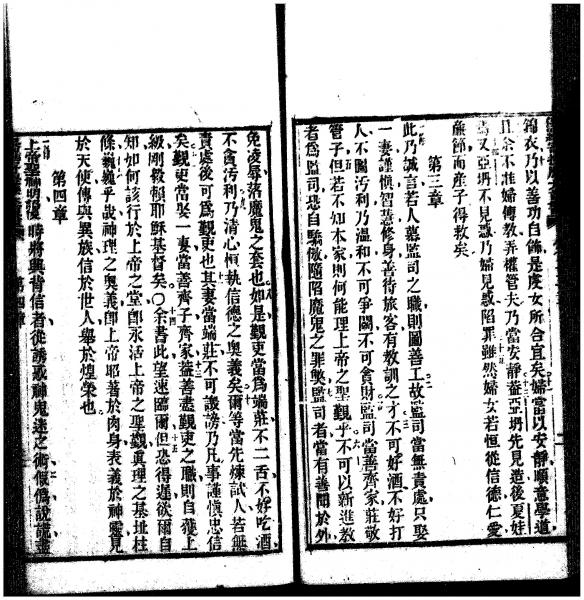 錦衣乃以善功自飾是虔女所合宜矣婦當以安靜順意學道
且余不准婦傳教弄權管夫乃當安靜蓋亞坍先見造後夏娃
焉又亞坍不見惑乃婦見惑陷罪雖然婦女若恒從信德仁愛
廉節而產子得救矣
第三章
此乃誠言若人慕監司之職則圖善工故監司當無責處只娶
一妻謹慎智慧修身善待旅客有教訓之才不可好酒不好打
人不圖污利乃溫和不可爭鬭不可貪財監司當善齊家莊敬
管子但若不知本家則何能理上帝之聖觀乎不可以新進教
者為監司恐自驕傲隨陷魔鬼之罪獘監司者當有善聞於外
免凌辱落魔鬼之套也如是觀吏當為端莊不二舌不好吃酒
不貪汚利乃清心恒執信德之奧義矣爾等當先煉試人若無
責處後可為觀吏也其妻當端莊不可譏謗乃凡事謹慎忠信
矣觀吏當娶一妻當善齊子齊家蓋善盡觀吏之職則自獲上
級剛毅賴耶穌基督矣〇余書此望速臨爾但恐得遲欲爾自
知如何該行於上帝之堂卽永活上帝之聖觀真理之基址柱
條巍巍乎哉神理之奧義卽上帝昭著於肉身表義於神靈見
於天使傳與異族信於世人舉於煌榮也
第四章
上帝聖神明說後時將輿背信者從誘惑神鬼迷之術假偽說謊